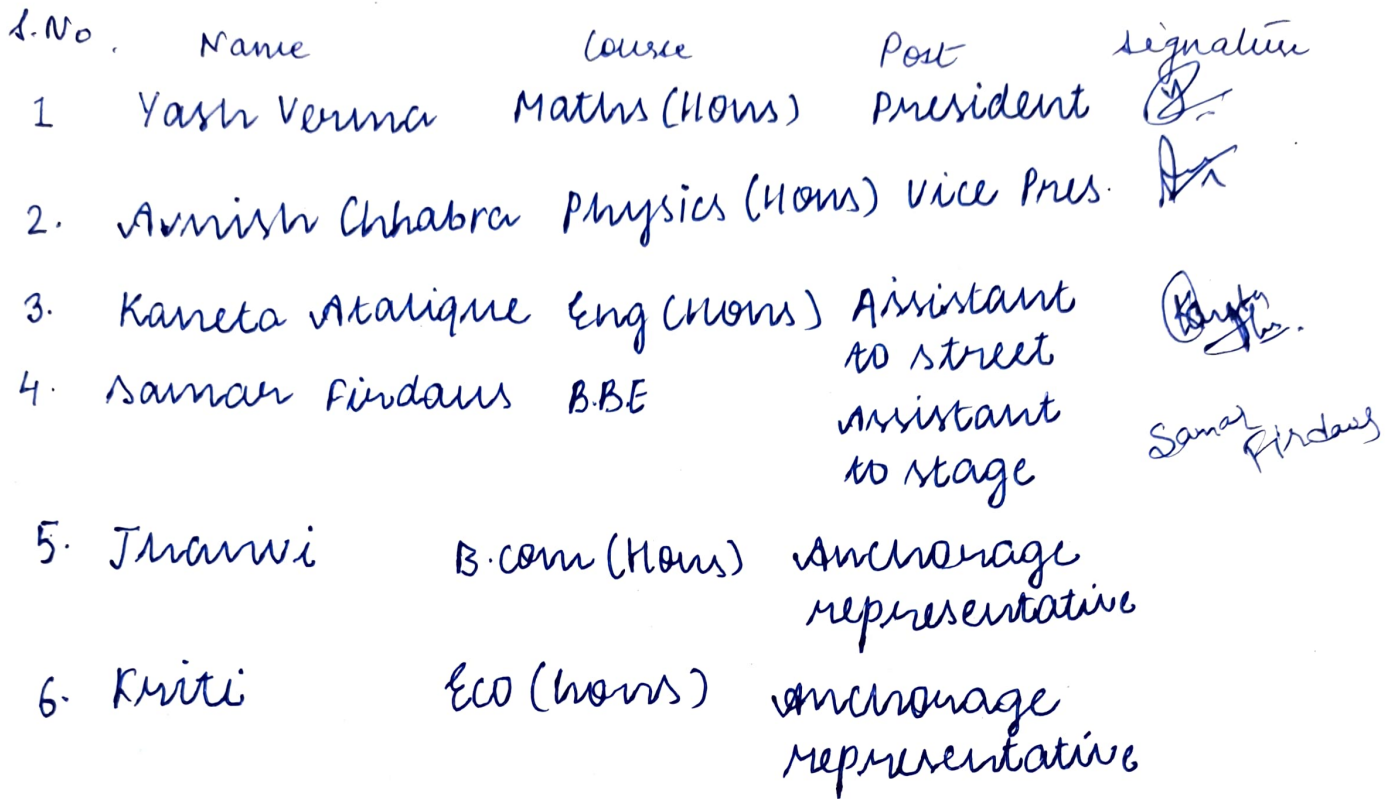 S.No. Name Course Post Signature
1 Yash Verma Maths (Hons) President
2. Avnish Chhabra Physics (Hons) Vice Pres.
3. Kaneta Atalique Eng (Hons) Assistant
to street
4. Samar Firdaus B.B.E
Assistant
to stage Samar Firdaus
5. Jhanvi B.com (Hons) Anchorage
representative
6. Kriti Eco (hons) Anchorage
representative